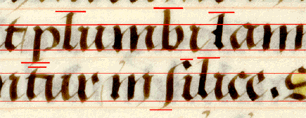 t plumbi lam
ntur in silice. s